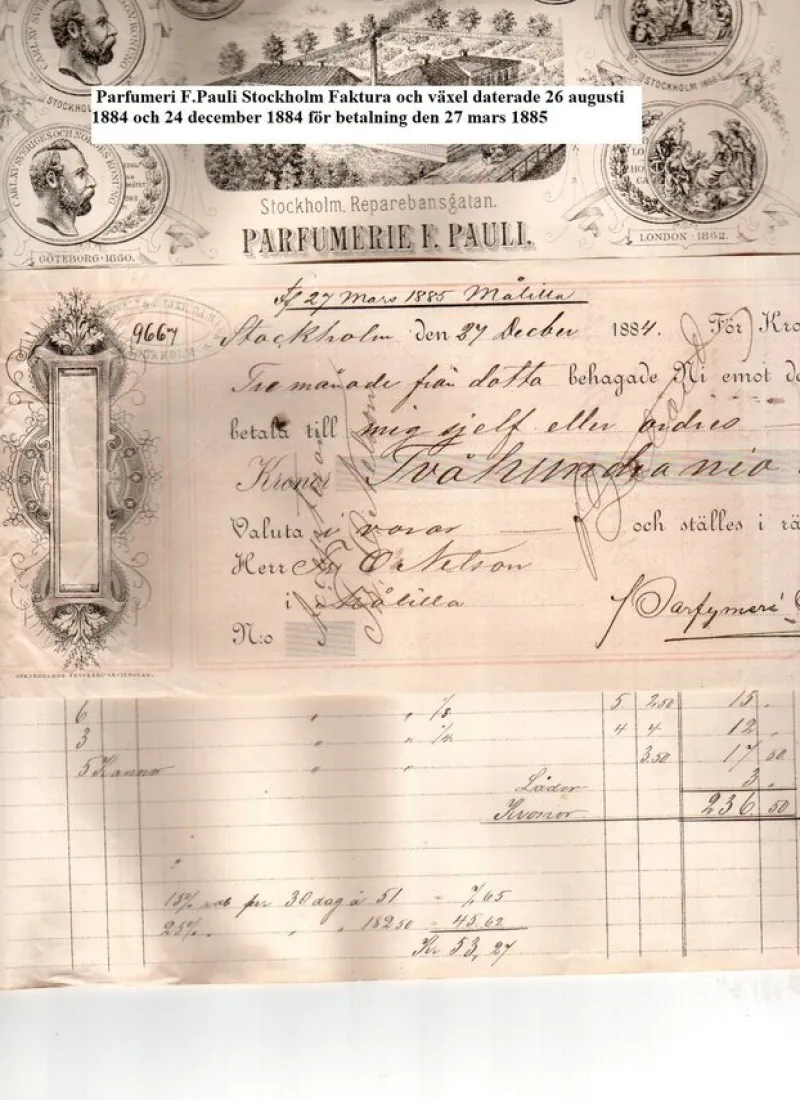 CARL XV SVERIGES OCH NORGES KONUNG
STOCKHOLM
STOCKHOLM 1866.
Parfumeri F.Pauli Stockholm Faktura och växel daterade 26 augusti
1884 och 24 december 1884 för betalning den 27 mars 1885
CARL XV SVERIGES OCH NORGES KONUNG
GÖTEBORG 1860.
LONDON 1862.
Stockholm, Reparebansgatan.
PARFUMERIE F. PAULI.
27 Mars 1885 Målilla
9667
STOCKHOLM
Stockholm den 27 Decber 1884. För Kro
Tre månade från datto behagade Ni emot de
betala till mig sjelf eller ordres
Kronor Tvåhundra nio
Valuta i varor och ställes i rä
Herr Ny O Nelson
i Målilla
Parfymeri
N:o
6 " " 1/8 5 2,50 15 .
3 " " 1/4 4 4 12 .
5 Kannor " " 3.50 17 50
Låder 3 .
Kronor 236.50
15% rab per 30 dag à 51 = 7,65
25% " " " 182 50 = 45.62
Kr 53,27